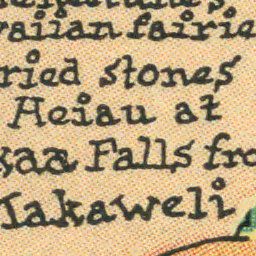 waiian fairie
ried stones
Heiau at
kaa Falls fro
Makaweli